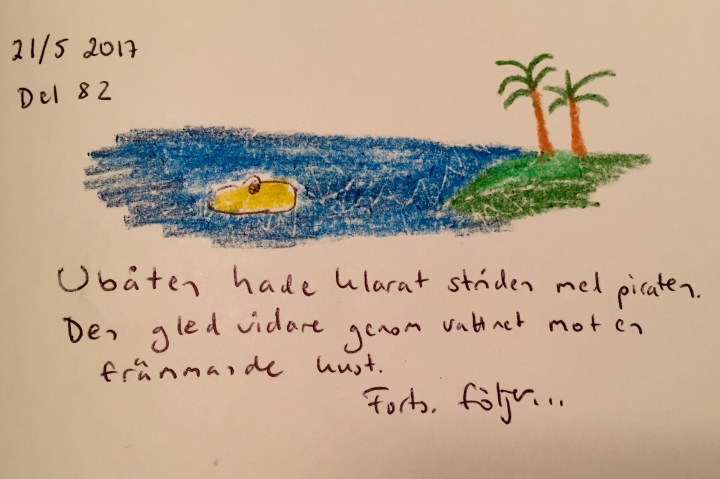 21/5 2017
Del 82
Ubåten hade klarat striden med piraten.
Den gled vidare genom vattnet mot en
främmande kust.
Forts. följer...